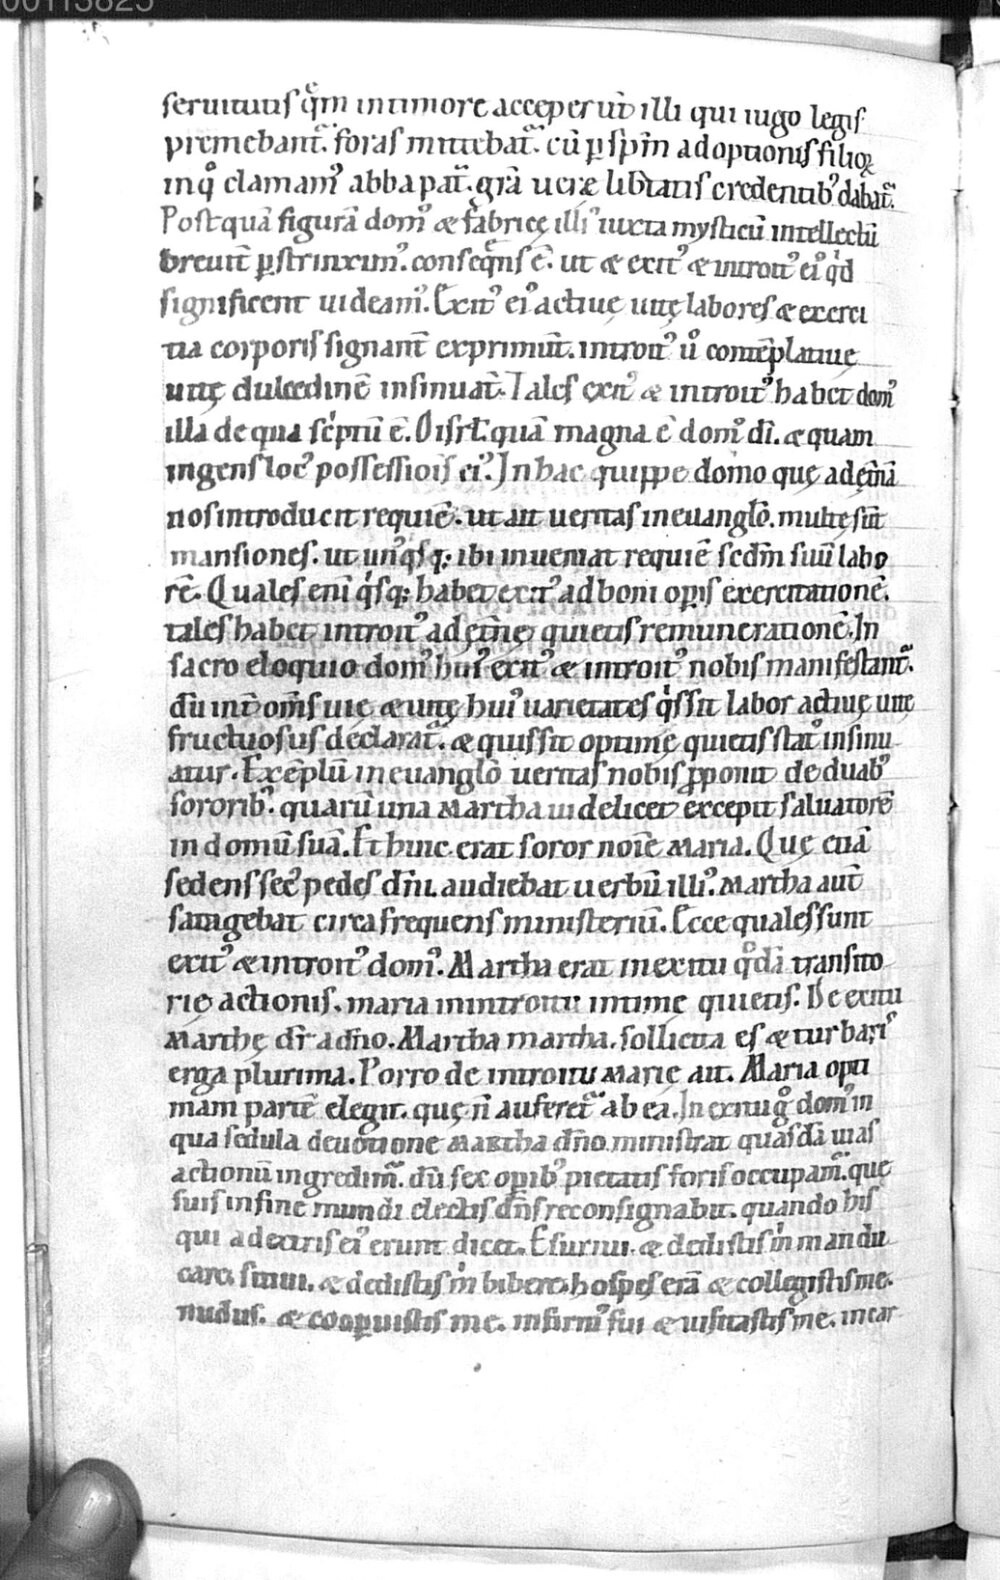 00113825
seruitutis qͣm in timore acceperūt illi qui iugo legis
premebantᷣ. foras mittebatᷣ. cū ꝑ sp̄m adoptionis filioꝝ
in qͦ clamamꝰ abba patᷣ. gr̄a uerę lib̄tatis credentibꝰ dabatᷣ.
Postquā figurā domꝰ & fabricę illiꝰ iuxta mysticū intellectū
breuit̄ ꝑstrinximꝰ. conseqͤns ē. ut & exitꝰ & introitꝰ eiꝰ qͥd
significent uideamꝰ. Exitꝰ eiꝰ actiuę uitę labores & exerci
tia corporis signant̄ exprimūt. introitꝰ uͦ contēplatiuę
uitę dulcedinē insinuat̄. Tales exitꝰ & introitꝰ habet domꝰ
illa de qua sc̄ptū ē. O isrl̄. quā magna ē domꝰ dī. & quam
ingens locꝰ possessiōis eiꝰ. In hac quippe domo quę ad ęt̄nā
nos introducit requiē. ut ait ueritas in euangl̄o. multę sūt
mansiones. ut unꝰqͥsq; ibi inueniat requiē sc̄dm suū labo
rē. Quales enī qͥsq; habet exitꝰ ad boni opis exercitationē.
tales habet introitꝰ ad ęt̄nę quietis remunerationē. In
sacro eloquio domꝰ huiꝰ exitꝰ & introitꝰ nobis manifestantᷣ.
dū int̄ om̄s uię & uitę huiꝰ uarietates qͥs sit labor actiuę uitę
fructuosus declaratᷣ. & quis sit optimę quietis statꝰ insinu
atur. Exēplū in euangl̄o ueritas nobis ꝓponit de duabꝰ
sororibꝰ. quarū una Martha uidelicet excepit saluatorē
in domū suā. Et huic erat soror noīe Maria. Quę etiā
sedens secꝰ pedes dn̄i. audiebat uerbū illiꝰ. Martha aut̄
satagebat circa frequens ministeriū. Ecce quales sunt
exitꝰ & introitꝰ domꝰ. Martha erat in exitu qͦdā transito
rię actionis. maria in introitu intimę quietis. De exitu
Marthę dr̄ a dn̄o. Martha martha. sollicita es & turbaris
erga plurima. Porro de introitu Marię ait. Maria opti
mam partē elegit. quę n̄ auferetᷣ ab ea. In exitu gͦ domꝰ in
qua sedula deuotione Martha dn̄o ministrat quasdā uias
actionū ingredimᷣ. dū sex opibꝰ pietatis foris occupamᷣ. quę
suis in fine mundi electis dn̄s reconsignabit. quando his
qui a dextris eiꝰ erunt dicet. Esuriui. & dedistis m̄ mandu
care. sitiui. & dedistis m̄ bibere. hospes erā & collegistis me.
nudus. & cooꝑuistis me. infirmꝰ fui & uisitastis me. in car